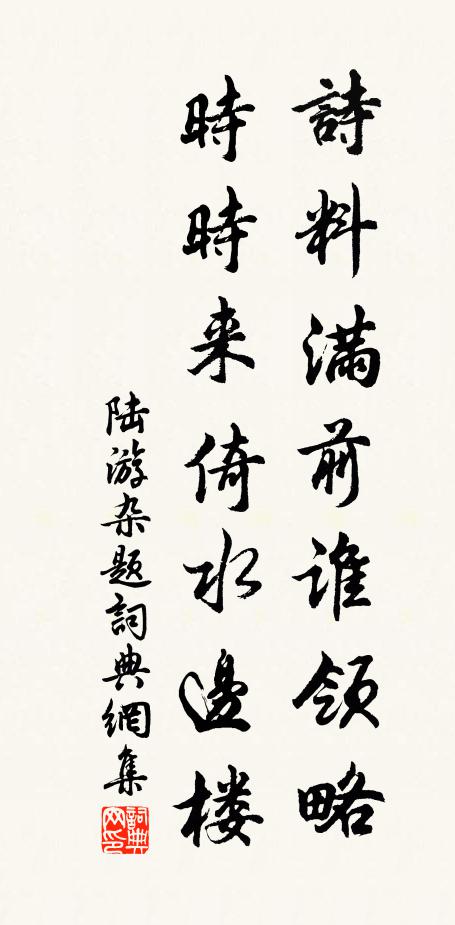 詩料滿前誰領略
時時来倚水邊楼
陆游杂题詞典網集
詞典网印